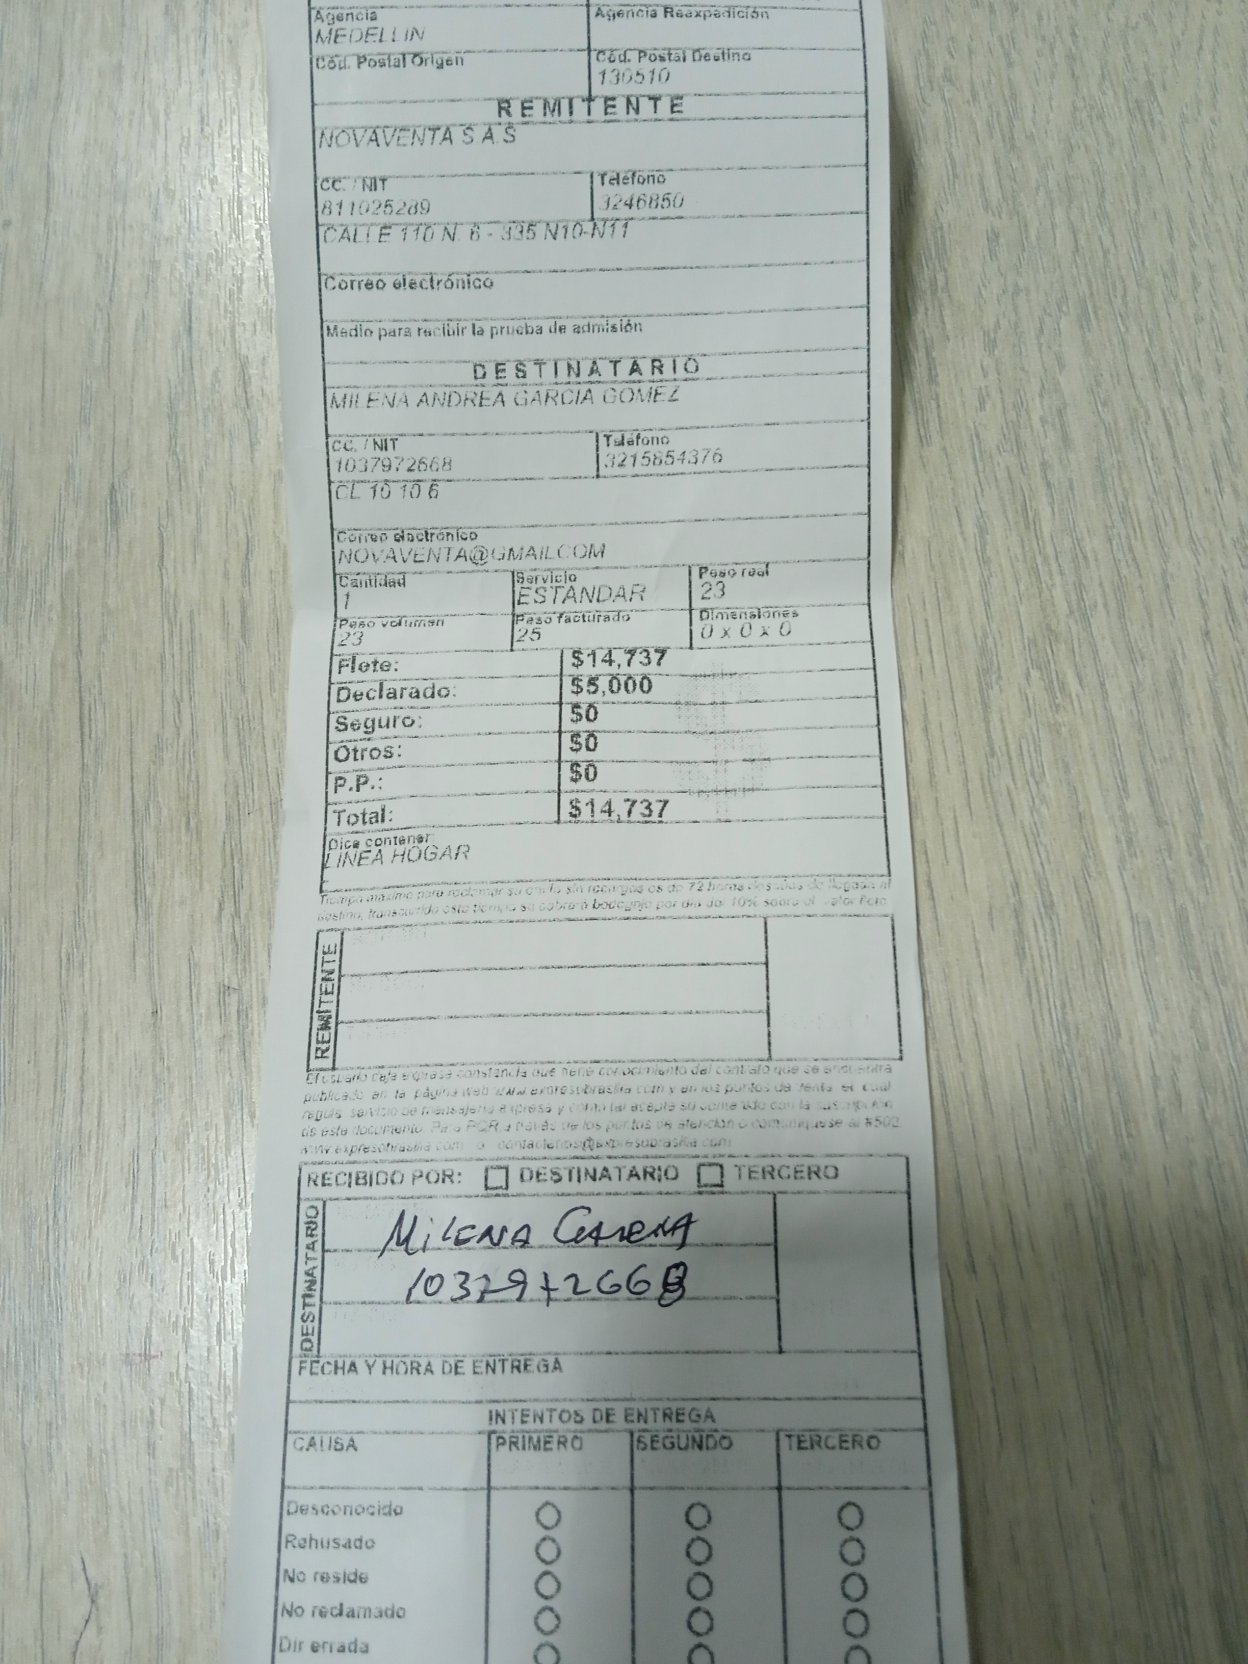 Agencia
MEDELLIN
Agencia Reexpedición
Cód. Postal Origen
Cód. Postal Destino
130510
REMITENTE
NOVAVENTA S.A.S
CC. / NIT
811025289
Teléfono
3246850
CALLE 110 N. 6 - 335 N10-N11
Correo electrónico
Medio para recibir la prueba de admisión
DESTINATARIO
MILENA ANDREA GARCIA GOMEZ
CC. / NIT
1037972668
Teléfono
3215854376
CL 10 10 6
Correo electrónico
NOVAVENTA@GMAIL.COM
Cantidad
1
Servicio
ESTANDAR
Peso real
23
Peso volumen
23
Peso facturado
25
Dimensiones
0 x 0 x 0
Flete: $14,737
Declarado: $5,000
Seguro: $0
Otros: $0
P.P.: $0
Total: $14,737
Dice contener:
LINEA HOGAR
Tiempo máximo para reclamar su envío sin recargos es de 72 horas después de llegada al
destino, transcurrido este tiempo se cobrará bodegaje por día del 10% sobre el valor flete
REMITENTE
El usuario deja expresa constancia que tiene conocimiento del contrato que se encuentra
publicado en la página web www.expresobrasilia.com y en los puntos de venta, el cual
regula servicio de mensajería expresa y como tal acepta su contenido con la suscripción
de este documento. Para PQR a través de los puntos de atención o comuníquese al #502
www.expresobrasilia.com o contactenos@expresobrasilia.com
RECIBIDO POR: DESTINATARIO TERCERO
DESTINATARIO
MILENA
1037972668
FECHA Y HORA DE ENTREGA
INTENTOS DE ENTREGA
CAUSA PRIMERO SEGUNDO TERCERO
Desconocido
Rehusado
No reside
No reclamado
Dir errada